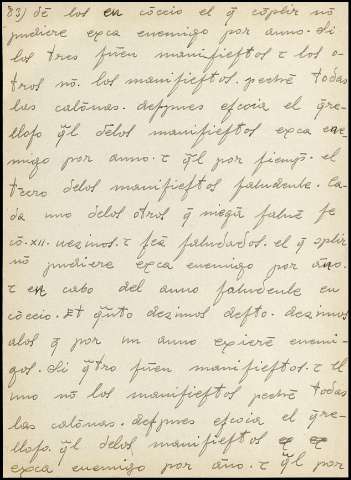 83) dē los en cōceio el q̄ cōplir nō
pudiere exca enemigo por anno. Si
los tres fuēn manifieſtos τ los o-
tros nō. los manifieſtos. pechē todas
las calōnas. deſpues eſcoia el q̄re-
lloſo q̄l delos manifieſtos exca ene-
migo por anno. τ q̄l por ſiemp̄. el
t̄cero delos manifieſtos ſaludenle. Ca-
da uno delos otros q̄ niegā ſalue ſe
cō. XII. uezinos. τ ſeā ſaludados. el q̄ cplir
nō pudiere exca enemigo por año.
τ en cabo del anno ſaludenle en
cōceio. Et q̄nto dezimos deſto. dezimos
alos q̄ por un anno exierē enemi-
gos. Si q̄tro fuēn manifieſtos. τ el
uno nō los manifieſtos pechē todas
las calōnas. deſpues eſcoia el q̄re-
lloſo. q̄l delos manifieſtos
exca enemigo por año. τ q̄l por